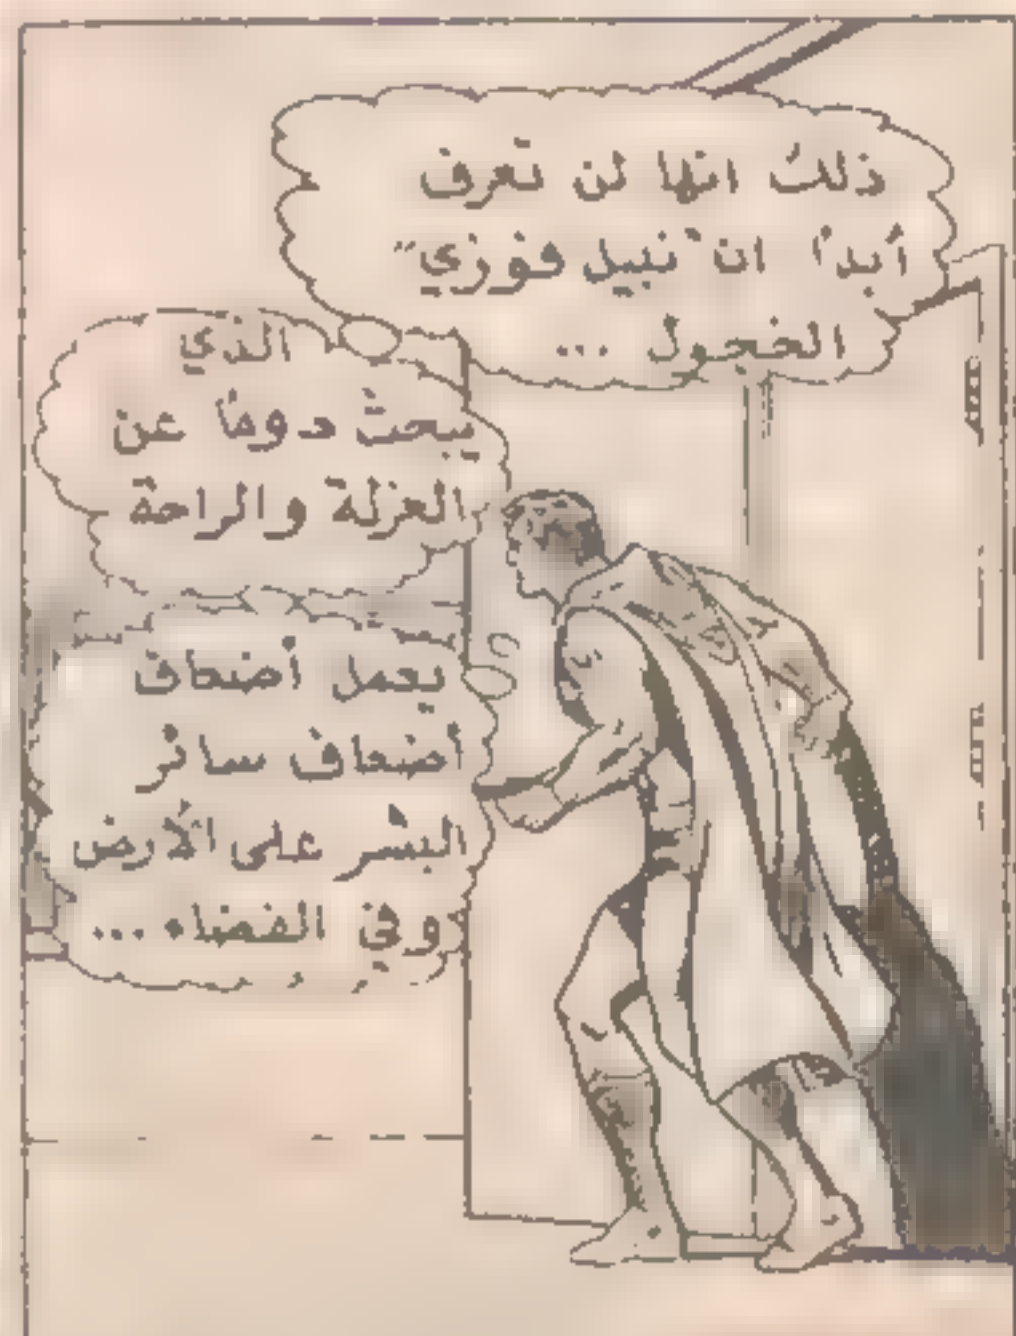 ذلك انها لن تعرف
أبداً ان "نبيل فوزي"
الخجول ...
الذي
يبحث دوماً عن
العزلة والراحة
يعمل أضعاف
أضعاف سائر
البشر على الأرض
وفي الفضاء ...